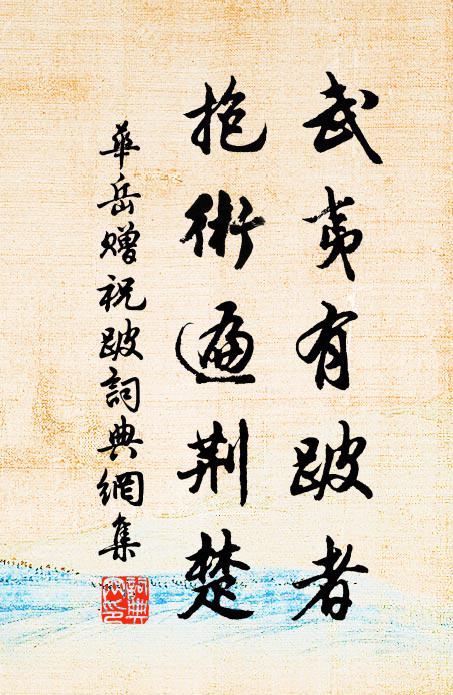 武夷有跛者
抱術遍荆楚
華岳贈祝跛詞典網集